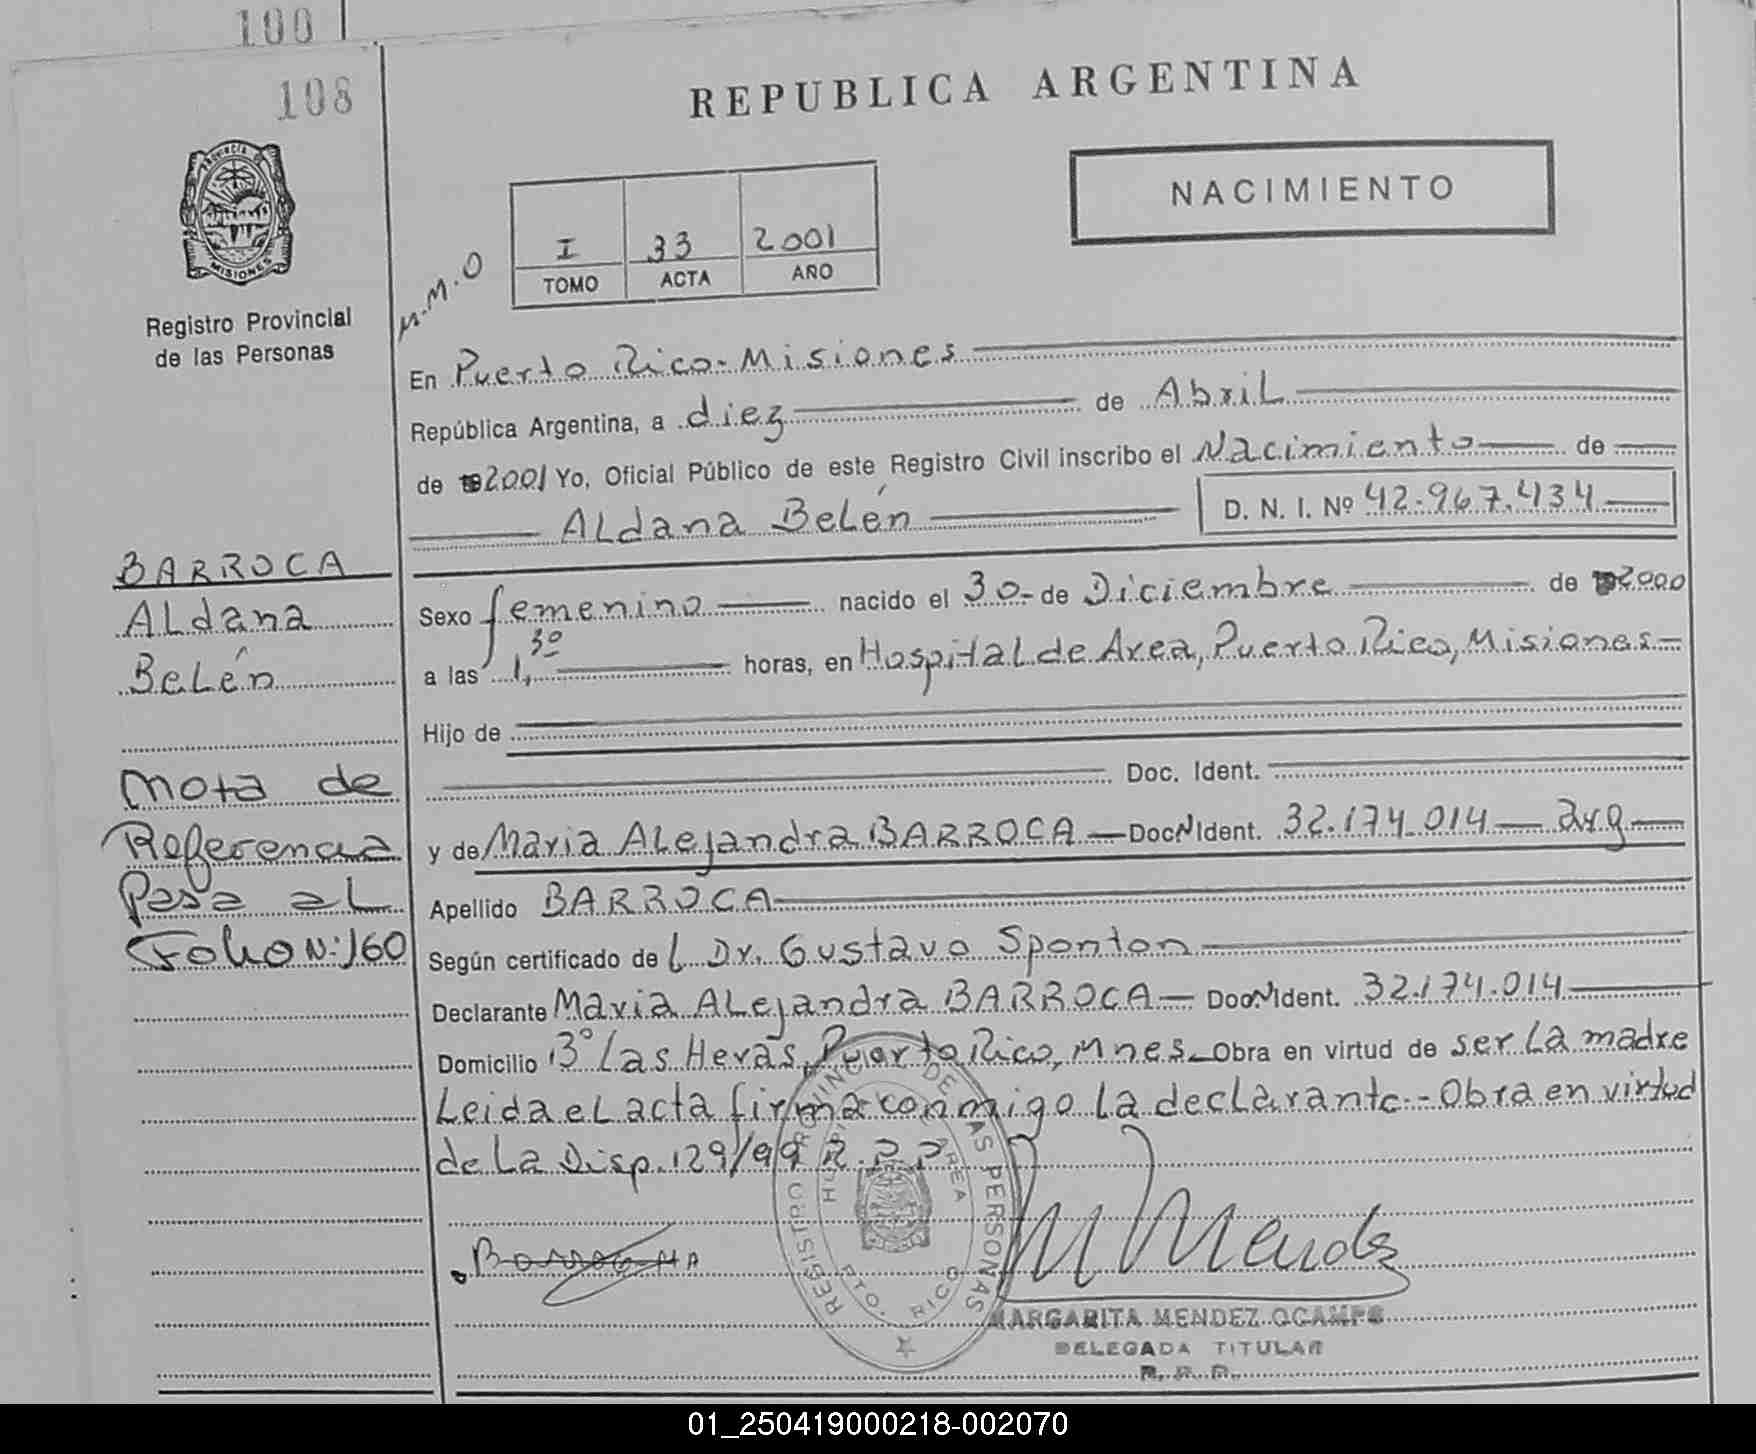 100
108
REPUBLICA ARGENTINA
NACIMIENTO
PROVINCIA DE
MISIONES
Registro Provincial
de las Personas
M.M.O
I 33 2001
TOMO ACTA AÑO
En Puerto Rico-Misiones
República Argentina, a diez de Abril
de 2001 Yo, Oficial Público de este Registro Civil inscribo el Nacimiento de
ALdana BeLén D. N. I. Nº 42.967.434
BARROCA
ALdana
BeLén
Sexo femenino nacido el 30- de Diciembre de 2000
a las 1,30 horas, en HospitaL de Area, Puerto Rico, Misiones-
Hijo de
Doc. Ident.
Nota de
Referencia
Pasa aL
Folio N:160
y de Maria ALejandra BARROCA - Doc N Ident. 32.174.014 - arg -
Apellido BARROCA
Según certificado de L Dr. Gustavo Sponton
Declarante Maria ALejandra BARROCA - Doc N Ident. 32.174.014
Domicilio Bº Las Heras, Puerto Rico, Mnes- Obra en virtud de ser La madre
Leida eL acta firma conmigo La decLarante.- Obra en virtud
de La Disp. 129/99 R.P.P
REGISTRO PROVINCIAL DE LAS PERSONAS
HOSPITAL DE AREA
PTO. RICO
M Mendez
MARGARITA MENDEZ OCAMPO
DELEGADA TITULAR
R. P. P.
01_250419000218-002070